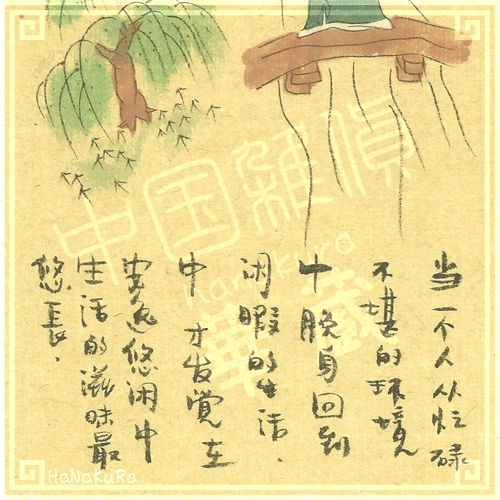 当一个人从忙碌
不堪的环境
中脱身回到
闲暇的生活.
中 才发觉在
安逸悠闲中
生活的滋味最
悠長.
中国雑貨
HaNaKuRa
華蔵
HaNaKuRa